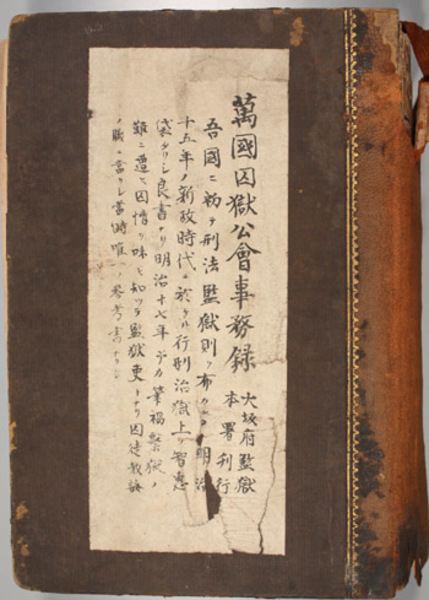 萬國囚獄公會事務録
大坂府監獄
本署刊行
吾國ニ初テ刑法監獄則ヲ布 明治
十五年ノ新政時代ニ於ケル行刑治獄上ノ智惠
袋タリシ良書ナリ明治十七年 筆禍繋獄ノ
難ニ遭ヒ囚情ヲ味ヒ知ツテ監獄吏トナリ囚徒教誨
ノ職ニ當リシ當時唯一ノ参考書ナリシ